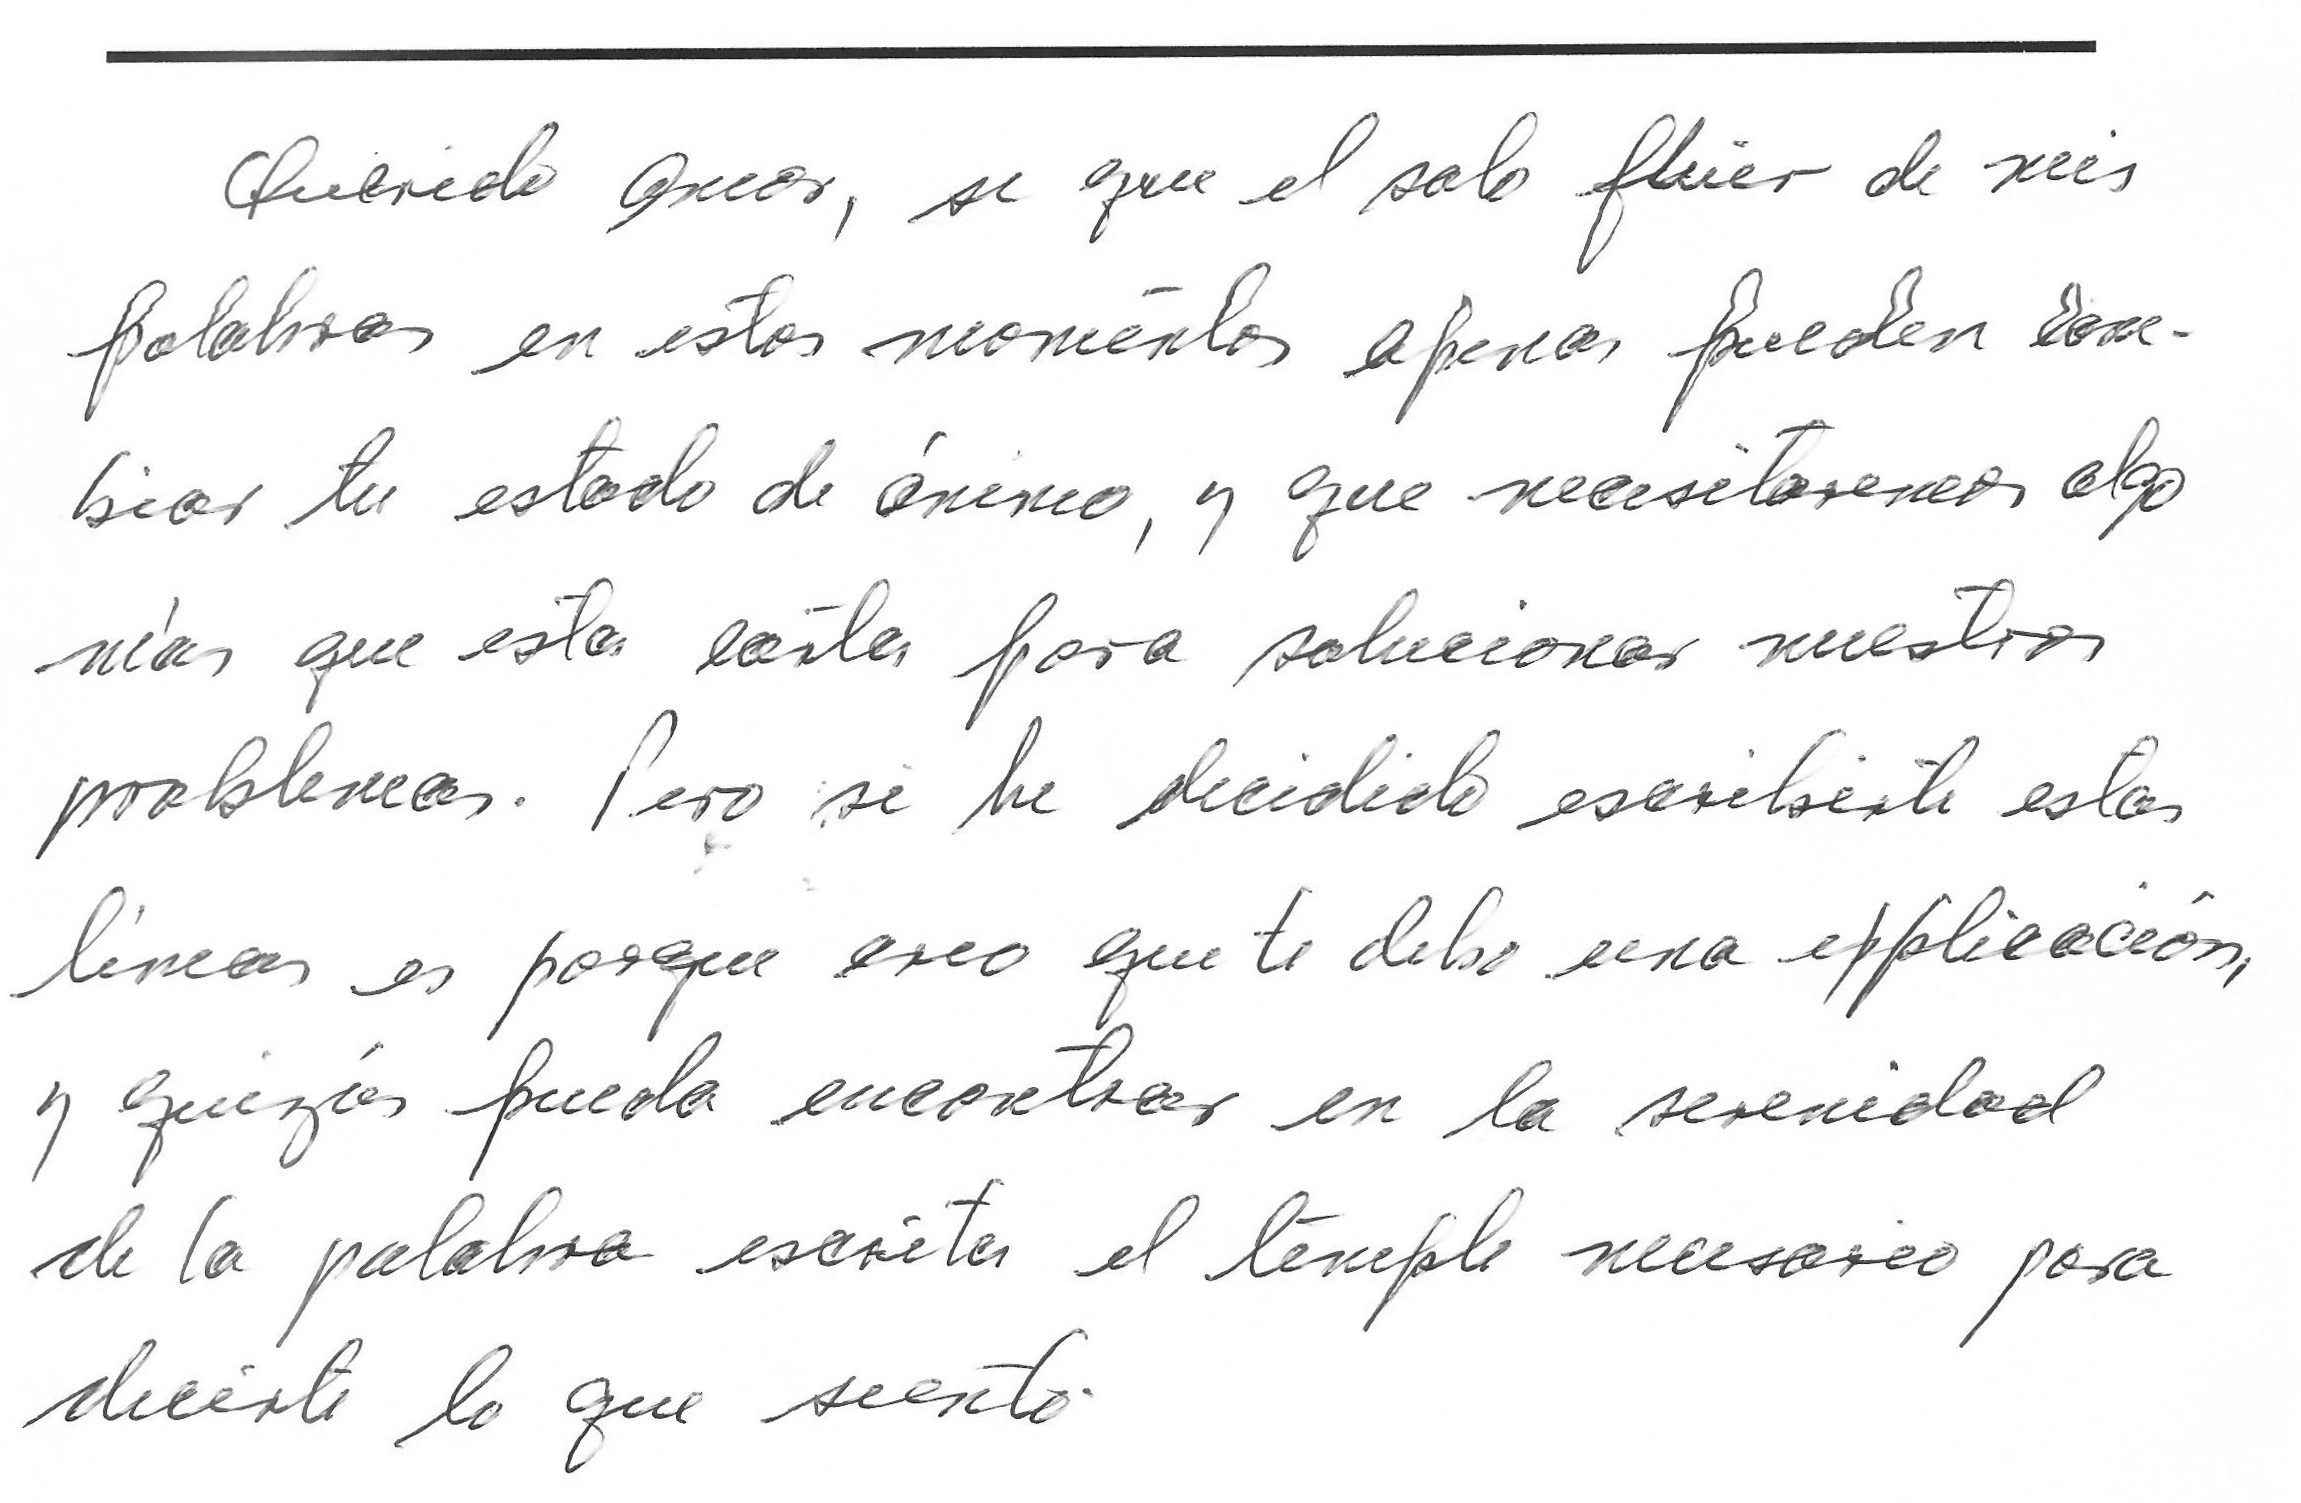 Querido Amor, se que el solo fluier de mis
palabras en estos momentos apenas pueden cam-
biar tu estado de ánimo, y que necesitaremos algo
más que esta carta para solucionar nuestros
problemas. Pero si he decidido escribirte estas
líneas es porque creo que te debo una explicación,
y quizás pueda encontrar en la serenidad
de la palabra escrita el temple necesario para
decirte lo que siento.